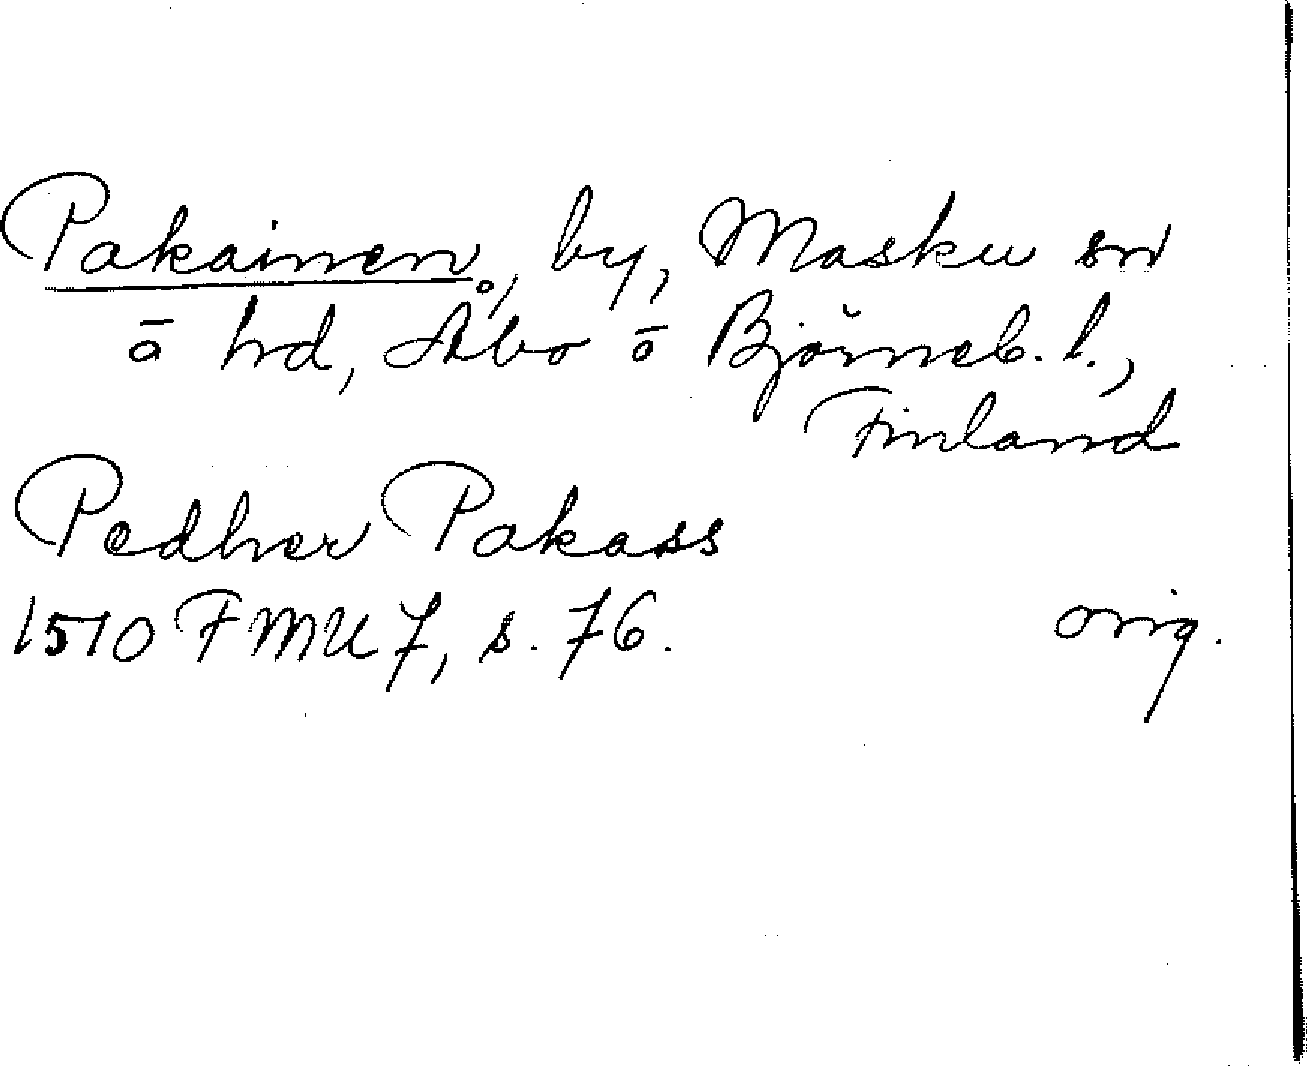 Pakainen, by, Masku sn
o hd, Åbo o Björneb. l.,
Finland
Pedher Pakass
1510 FMU 7, s. 76. orig.